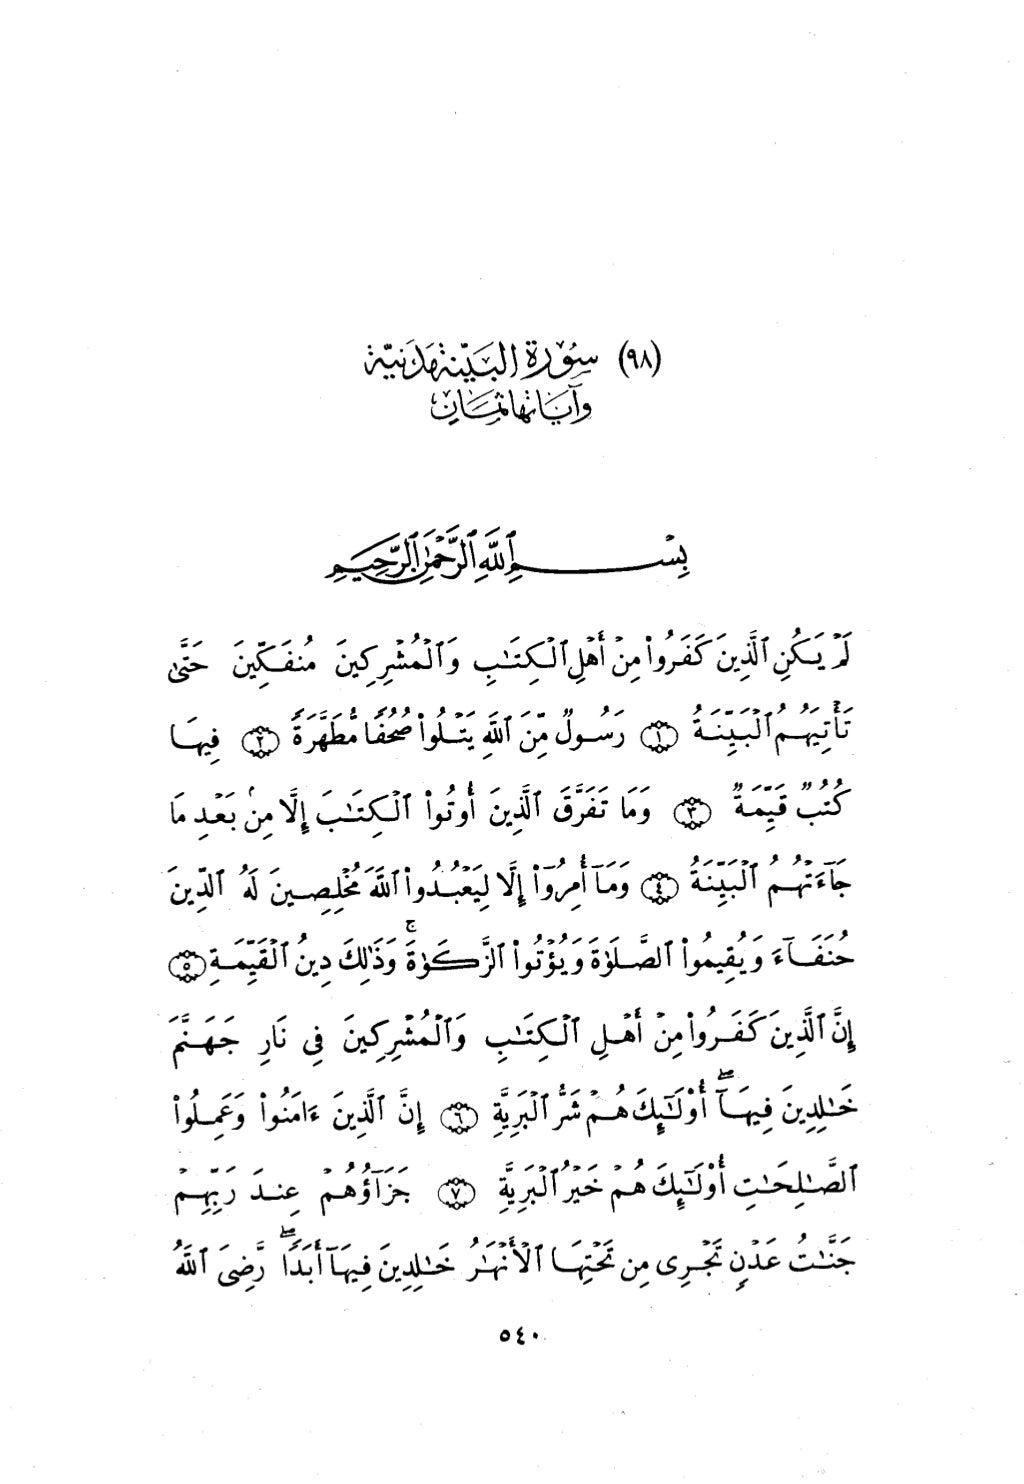 (٩٨) سُورَة البَيّنَة مَدَنيّة
وَآيَاتهَا ثَمَانٍ
بِسْمِ ٱللَّهِ ٱلرَّحْمَٰنِ ٱلرَّحِيمِ
لَمْ يَكُنِ ٱلَّذِينَ كَفَرُوا۟ مِنْ أَهْلِ ٱلْكِتَٰبِ وَٱلْمُشْرِكِينَ مُنفَكِّينَ حَتَّىٰ
تَأْتِيَهُمُ ٱلْبَيِّنَةُ ﴿١﴾ رَسُولٌ مِّنَ ٱللَّهِ يَتْلُوا۟ صُحُفًا مُّطَهَّرَةً ﴿٢﴾ فِيهَا
كُتُبٌ قَيِّمَةٌ ﴿٣﴾ وَمَا تَفَرَّقَ ٱلَّذِينَ أُوتُوا۟ ٱلْكِتَٰبَ إِلَّا مِنۢ بَعْدِ مَا
جَآءَتْهُمُ ٱلْبَيِّنَةُ ﴿٤﴾ وَمَآ أُمِرُوٓا۟ إِلَّا لِيَعْبُدُوا۟ ٱللَّهَ مُخْلِصِينَ لَهُ ٱلدِّينَ
حُنَفَآءَ وَيُقِيمُوا۟ ٱلصَّلَوٰةَ وَيُؤْتُوا۟ ٱلزَّكَوٰةَ ۚ وَذَٰلِكَ دِينُ ٱلْقَيِّمَةِ ﴿٥﴾
إِنَّ ٱلَّذِينَ كَفَرُوا۟ مِنْ أَهْلِ ٱلْكِتَٰبِ وَٱلْمُشْرِكِينَ فِى نَارِ جَهَنَّمَ
خَٰلِدِينَ فِيهَآ ۖ أُو۟لَٰٓئِكَ هُمْ شَرُّ ٱلْبَرِيَّةِ ﴿٦﴾ إِنَّ ٱلَّذِينَ ءَامَنُوا۟ وَعَمِلُوا۟
ٱلصَّٰلِحَٰتِ أُو۟لَٰٓئِكَ هُمْ خَيْرُ ٱلْبَرِيَّةِ ﴿٧﴾ جَزَآؤُهُمْ عِندَ رَبِّهِمْ
جَنَّٰتُ عَدْنٍ تَجْرِى مِن تَحْتِهَا ٱلْأَنْهَٰرُ خَٰلِدِينَ فِيهَآ أَبَدًا ۖ رَّضِىَ ٱللَّهُ
٥٤٠